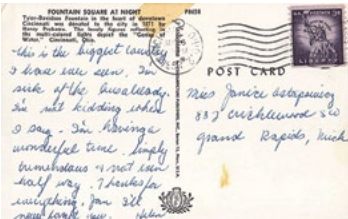 FOUNTAIN SQUARE AT NIGHT
P98528
Tyler-Davidson Fountain in the heart of downtown
Cincinnati was donated to the city in 1871 by
Henry Probasco. The lovely figures reflecting in
the multi-colored lights depict the "Genius of
Water." Cincinnati, Ohio.
this is the biggest country
I have ever seen. I'm
sick of the bus already.
I'm not kidding when
I say I'm having a
wonderful time. Simply
tremendous & not even
half way. Thanks for
everything, Jan. I'll
never you. Helen
OHIO
LIBERTY
POST CARD
Miss Janice
832 Cricklewood SW
Grand Rapids, Mich